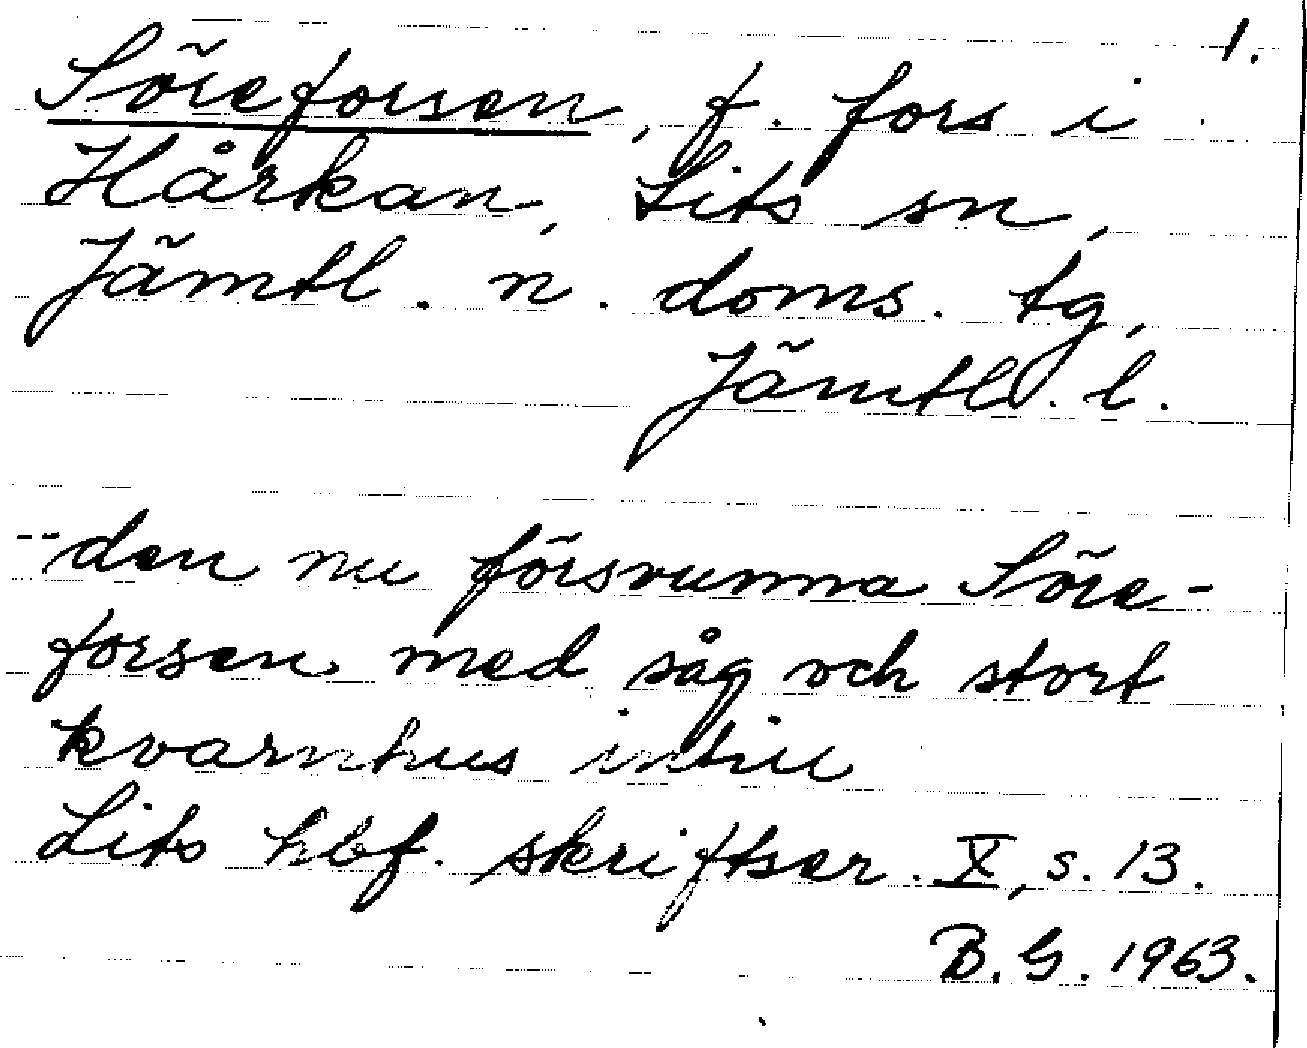 1.
Söreforsen, f. fors i
Hårkan, Lits sn,
Jämtl. n. doms. tg,
Jämtl. l.
--den nu försvunna Söre-
forsen med såg och stort
kvarnhus intill
Lits hbf. skriftser. X, s. 13.
B.G. 1963.